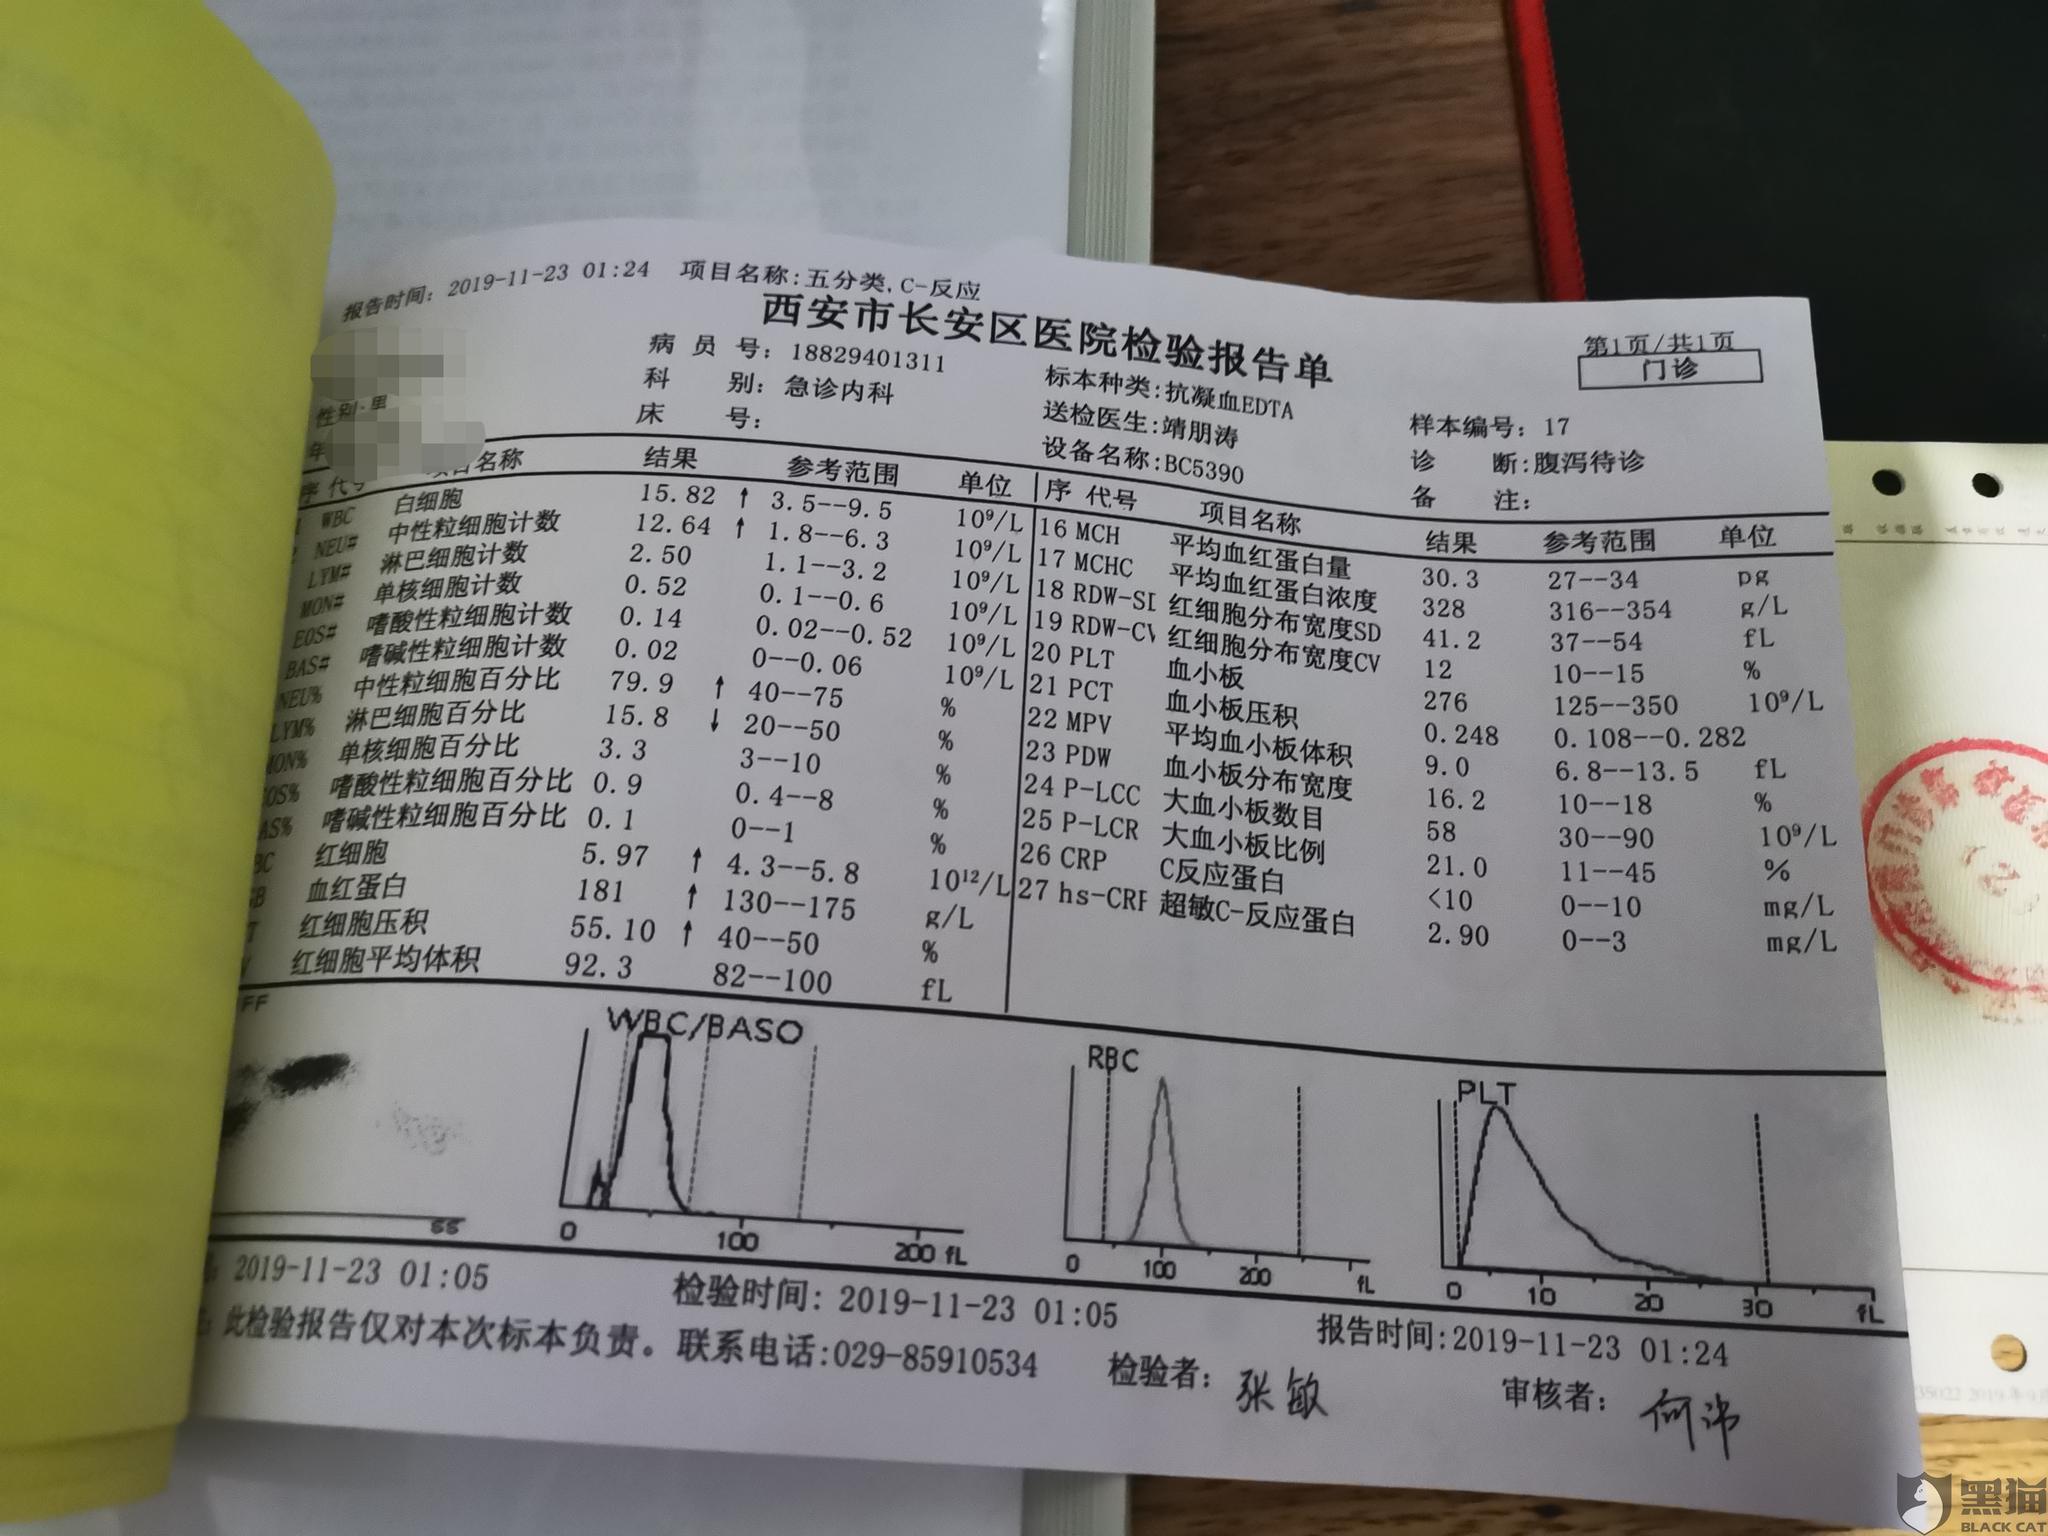 报告时间：2019-11-23 01:24 项目名称:五分类,C-反应
西安市长安区医院检验报告单
第1页/共1页
门诊
病 员 号：18829401311
标本种类:抗凝血EDTA
样本编号：17
性别:男
科 别：急诊内科
送检医生:靖朋涛
诊 断:腹泻待诊
年
床 号：
设备名称:BC5390
备 注：
序 代号 项目名称 结果 参考范围 单位
1 WBC 白细胞 15.82 ↑ 3.5--9.5 10⁹/L
2 NEU# 中性粒细胞计数 12.64 ↑ 1.8--6.3 10⁹/L
LYM# 淋巴细胞计数 2.50 1.1--3.2 10⁹/L
MON# 单核细胞计数 0.52 0.1--0.6 10⁹/L
EOS# 嗜酸性粒细胞计数 0.14 0.02--0.52 10⁹/L
BAS# 嗜碱性粒细胞计数 0.02 0--0.06 10⁹/L
NEU% 中性粒细胞百分比 79.9 ↑ 40--75 %
LYM% 淋巴细胞百分比 15.8 ↓ 20--50 %
MON% 单核细胞百分比 3.3 3--10 %
OS% 嗜酸性粒细胞百分比 0.9 0.4--8 %
AS% 嗜碱性粒细胞百分比 0.1 0--1 %
BC 红细胞 5.97 ↑ 4.3--5.8 10¹²/L
GB 血红蛋白 181 ↑ 130--175 g/L
T 红细胞压积 55.10 ↑ 40--50 %
V 红细胞平均体积 92.3 82--100 fL
序 代号 项目名称 结果 参考范围 单位
16 MCH 平均血红蛋白量 30.3 27--34 pg
17 MCHC 平均血红蛋白浓度 328 316--354 g/L
18 RDW-SD 红细胞分布宽度SD 41.2 37--54 fL
19 RDW-CV 红细胞分布宽度CV 12 10--15 %
20 PLT 血小板 276 125--350 10⁹/L
21 PCT 血小板压积 0.248 0.108--0.282
22 MPV 平均血小板体积 9.0 6.8--13.5 fL
23 PDW 血小板分布宽度 16.2 10--18 %
24 P-LCC 大血小板数目 58 30--90 10⁹/L
25 P-LCR 大血小板比例 21.0 11--45 %
26 CRP C反应蛋白 <10 0--10 mg/L
27 hs-CRP 超敏C-反应蛋白 2.90 0--3 mg/L
FF
SS
WBC/BASO
0 100 200 fL
RBC
0 100 200 fL
PLT
0 10 20 30 fL
2019-11-23 01:05
检验时间：2019-11-23 01:05
报告时间:2019-11-23 01:24
此检验报告仅对本次标本负责。联系电话:029-85910534
检验者：张敏
审核者：何沛
黑猫
BLACK CAT